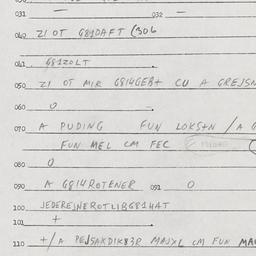 031 — 032 —
040 ZI OT G81DAFT (306
041 G81ZOLT
050 ZI OT MIR G814GEBT CU A GREJSN
060 O —
070 A PUDING FUN LOKSTN / A G
FUN MEL CM FEC
080 O
090 A G814ROTENER 091 O
100 JEDEREJNEROTLIBG814HAT
101 +
110 +/A PEJSAKDIK83R MAJXL CM FUN MA